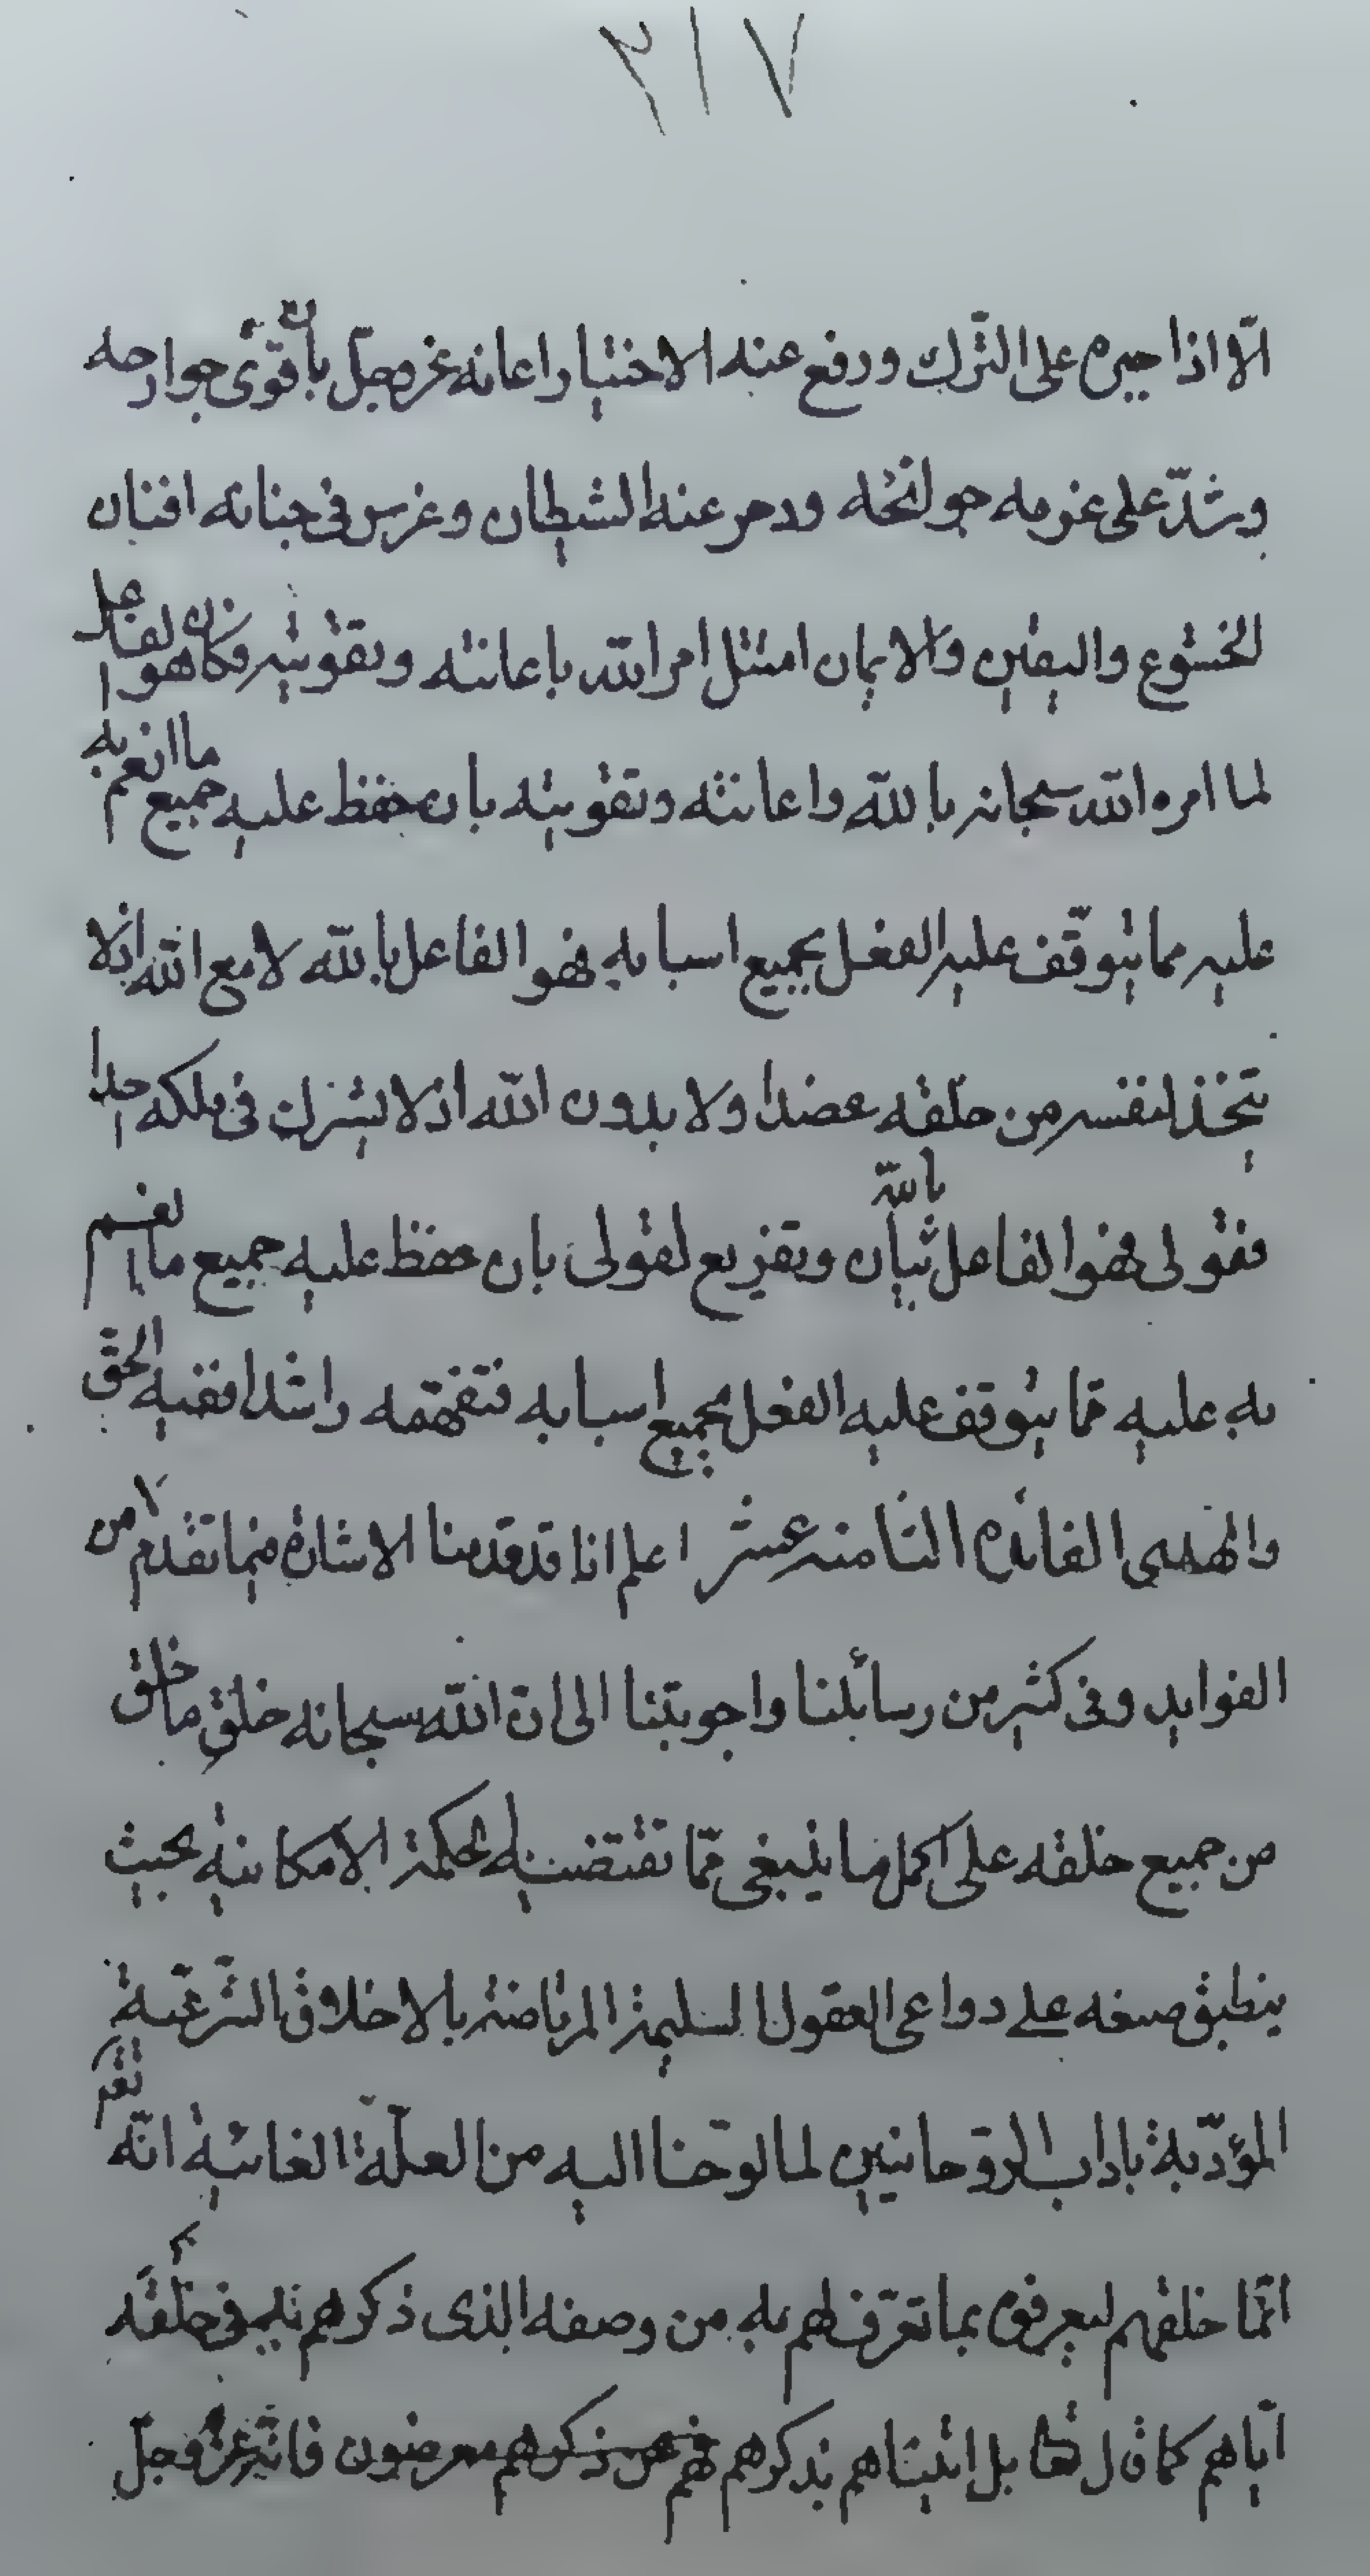 ٣١٧
الّا اذا صبرم على التّرك ودفع عنه الاختيار اعانه عزوجلّ بان قوّى جوارحه
وشدّ على عزمه جوانحه ودحر عنه الشيطان وغرس فى جنانه افنان
الخشوع واليقين والايمان امتثل امر الله باعانته وتقويته فكان هو الفاعل
لما امره الله سبحانه بالله واعانته وتقويته بان حفظ عليه جميع ما انعم به
عليه مما يتوقّف عليه الفعل بجميع اسبابه فهو الفاعل بالله لا مع الله اذ لا
يتّخذ لنفسه من خلقه عضدا ولا بدون الله اذ لا يشرك فى ملكه احدا
فقولى فهو الفاعل بالله بيان وتفريع لقولى بان حفظ عليه جميع ما انعم
به عليه ممّا يتوقف عليه الفعل بجميع اسبابه فتفهّمه راشدا ففيه الحقّ
والهدى الفائدة الثامنة عشر اعلم انا قد قدمنا الاشارة فيما تقدم من
الفوايد وفى كثير من رسائلنا واجوبتنا الى انّ الله سبحانه خلق ما خلق
من جميع خلقه على اكمل ما ينبغى ممّا تقتضيه الحكمة الامكانية بحيث
ينطبق صنعه على دواعى العقول السليمة المرتاضة بالاخلاق الشّرعيّة
المؤدّبة باداب الرّوحانيين لما لوّحنا اليه من العلّة الغائية انّه تعالى
انّما خلقهم ليعرفوه بما تعرّف لهم به من وصفه الذى ذكرهم به فى خلقه
ايّاهم كما قال تعالى بل اتيناهم بذكرهم فهم عن ذكرهم معرضون فانّه عزّوجلّ